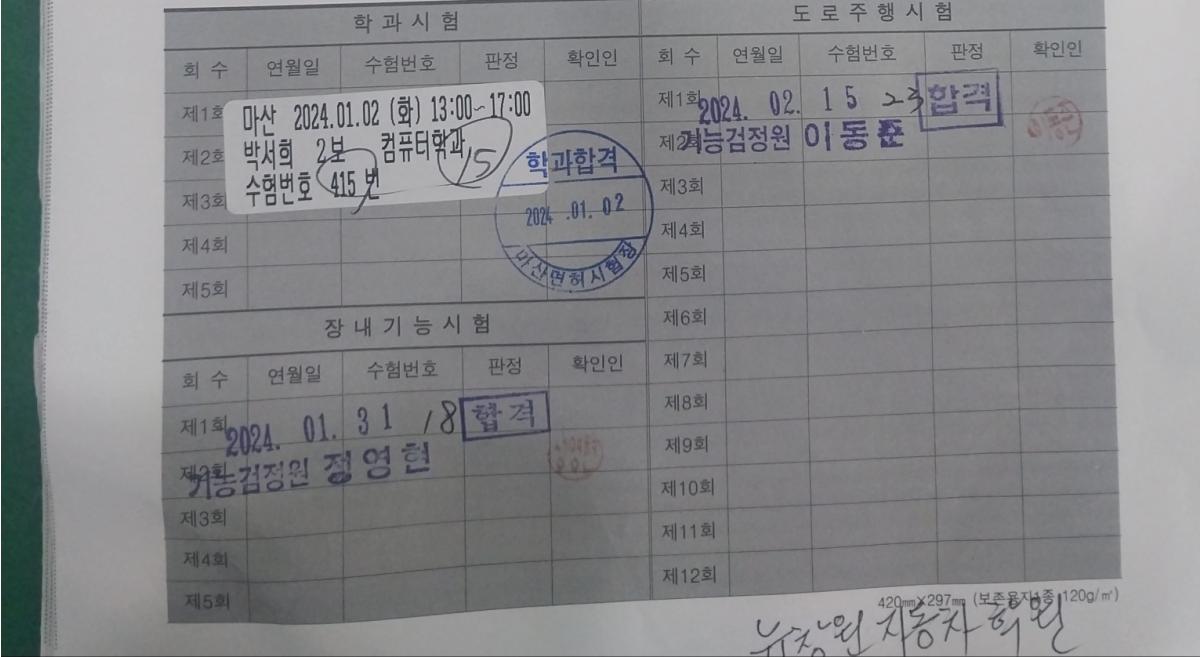 학과시험
회 수 연월일 수험번호 판정 확인인
제1회
마산 2024.01.02 (화) 13:00~17:00
박서희 2보 컴퓨터학과 15
수험번호 415 번
제2회
제3회
제4회
제5회
학과합격
2024 .01. 02
마산면허시험장
장내기능시험
회 수 연월일 수험번호 판정 확인인
제1회 2024. 01. 31 18 합격
제2회 기능검정원 정영현
제3회
제4회
제5회
도로주행시험
회 수 연월일 수험번호 판정 확인인
제1회 2024. 02. 15 23 합격
제2회 기능검정원 이동준
제3회
제4회
제5회
제6회
제7회
제8회
제9회
제10회
제11회
제12회
420㎜×297㎜ (보존용지1종 120g/㎡)
뉴창원 자동차 학원